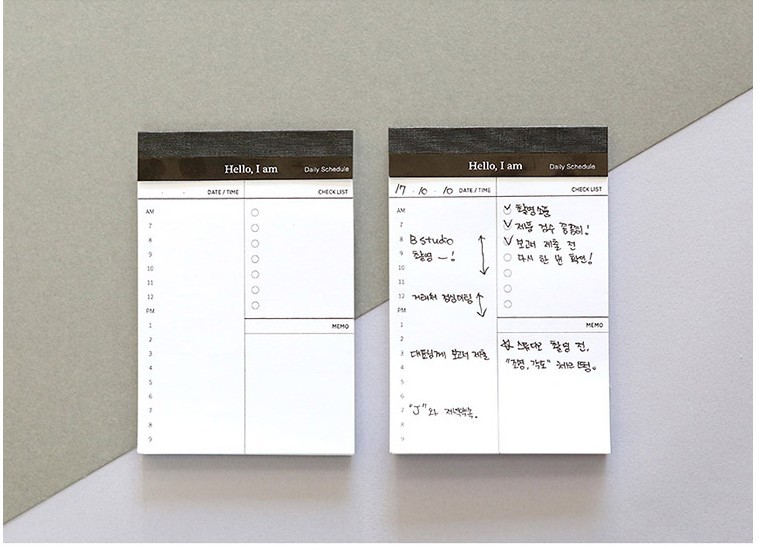 Hello, I am
Daily Schedule
DATE / TIME
CHECK LIST
AM
7
8
9
10
11
12
PM
1
2
3
4
5
6
7
8
9
MEMO
Hello, I am
Daily Schedule
17 · 10 · 10 DATE / TIME
CHECK LIST
AM
7
8
9
10
11
12
PM
1
2
3
4
5
6
7
8
9
B studio
촬영 ~!
거래처 점심미팅
대표님께 보고서 제출
"J"와 저녁약속.
촬영소품
제품 검수 꼼꼼히!
보고서 제출 전
다시 한 번 확인!
MEMO
스튜디오 촬영 전,
"조명, 각도" 체크